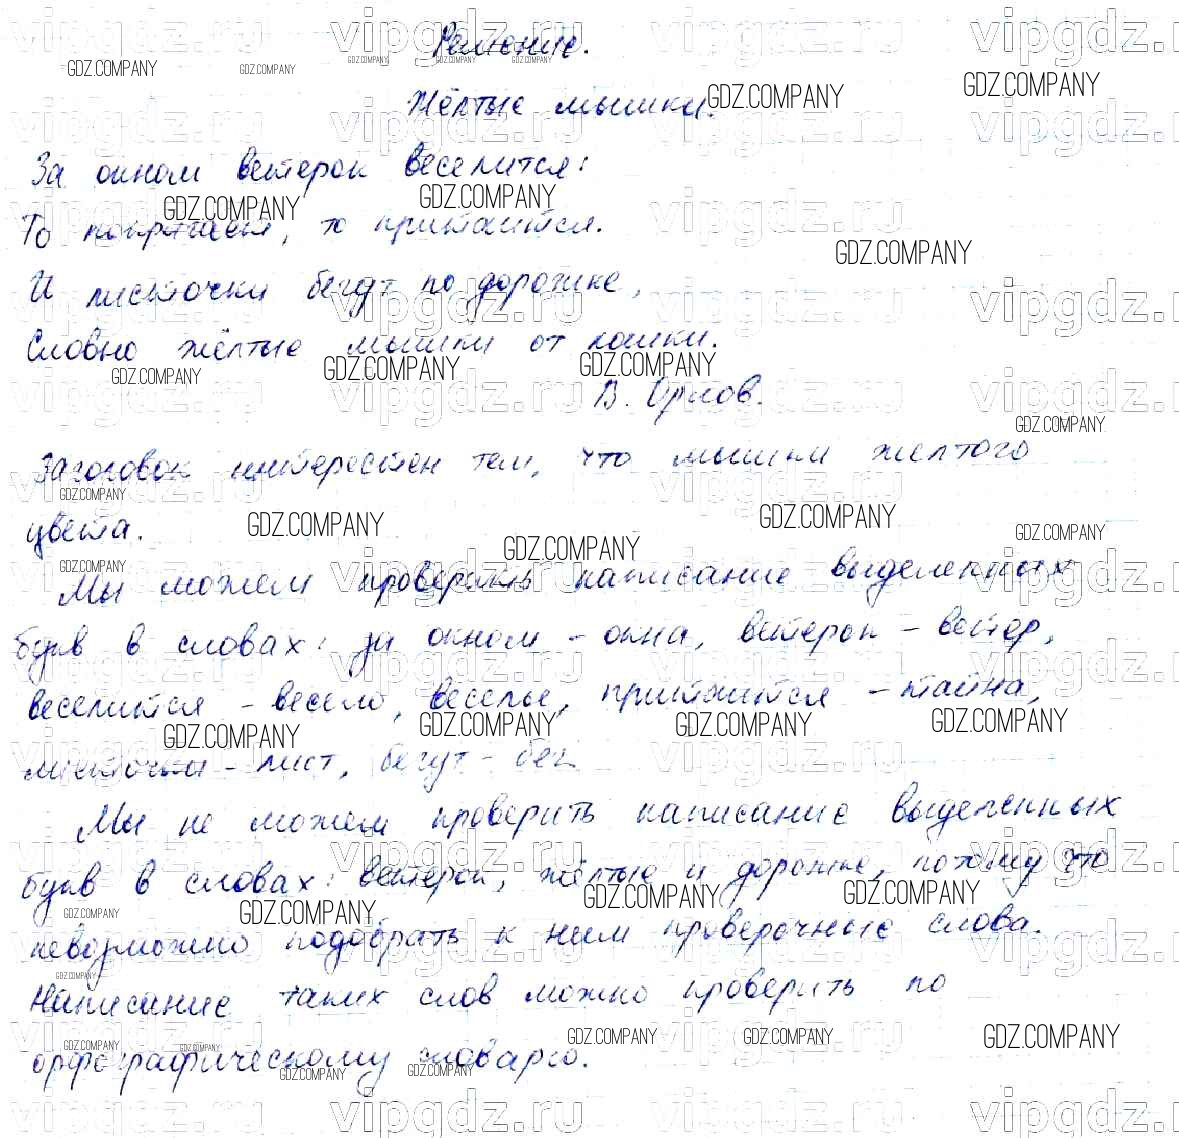 Решение.
Жёлтые мышки.
За окном ветерок веселится:
То попрыгает, то притаится.
И листочки бегут по дорожке,
Словно жёлтые мышки от кошки.
В. Орлов.
Заголовок интересен тем, что мышки желтого
цвета.
Мы можем проверить написание выделенных
букв в словах: за окном - окна, ветерок - ветер,
веселится - весело, веселье, притаится - тайна,
листочки - лист, бегут - бег.
Мы не можем проверить написание выделенных
букв в словах: ветерок, жёлтые и дорожке, потому что
невозможно подобрать к ним проверочные слова.
Написание таких слов можно проверить по
орфографическому словарю.